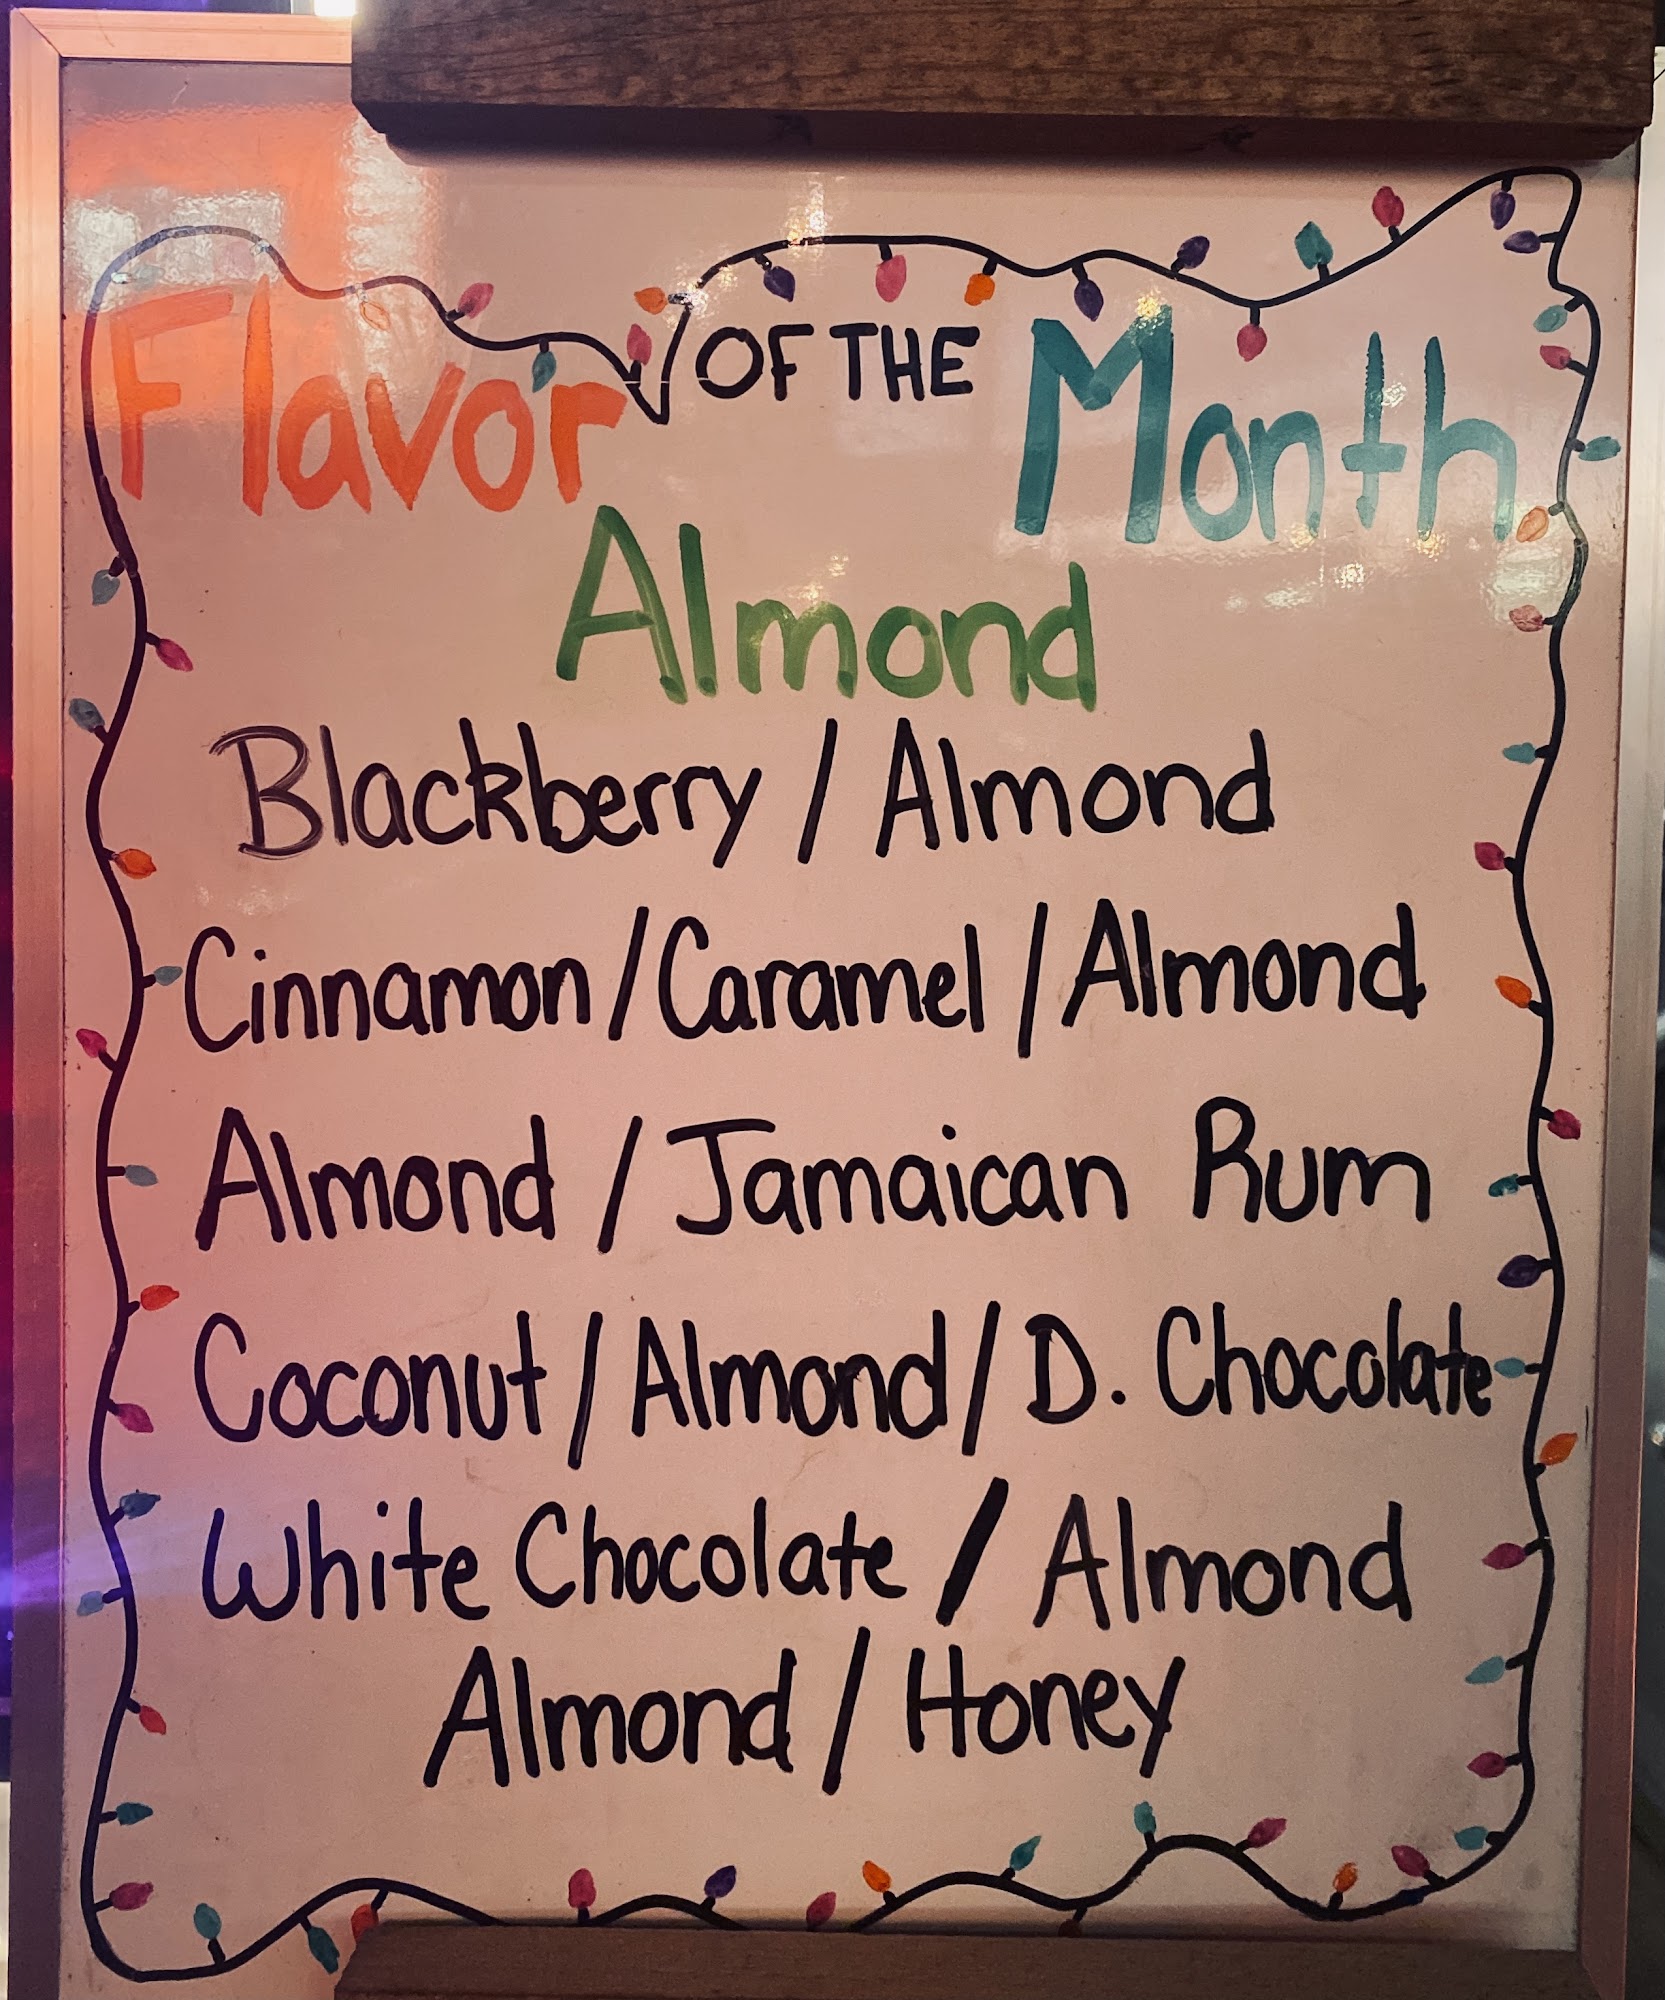 Flavor OF THE Month
Almond
Blackberry / Almond
Cinnamon / Caramel / Almond
Almond / Jamaican Rum
Coconut / Almond / D. Chocolate
White Chocolate / Almond
Almond / Honey